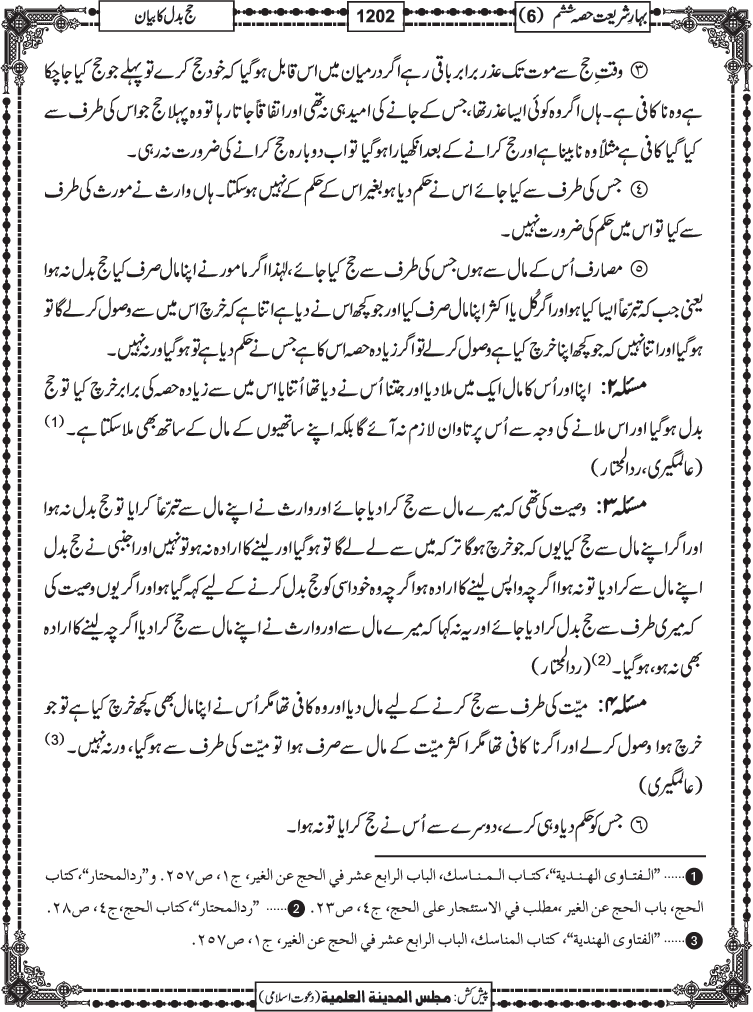 بہارِشریعت حصہ ششم (6)
1202
حج بدل کا بیان
③ وقتِ حج سے موت تک عذر برابر باقی رہے اگر درمیان میں اس قابل ہوگیا کہ خود حج کرے تو پہلے جو حج کیا جاچکا
ہے وہ ناکافی ہے۔ ہاں اگر وہ کوئی ایسا عذر تھا، جس کے جانے کی امید ہی نہ تھی اور اتفاقاً جاتا رہا تو وہ پہلا حج جو اس کی طرف سے
کیا گیا کافی ہے مثلاً وہ نابینا ہے اور حج کرانے کے بعد انکھیارا ہوگیا تو اب دوبارہ حج کرانے کی ضرورت نہ رہی۔
④ جس کی طرف سے کیا جائے اس نے حکم دیا ہو بغیر اس کے حکم کے نہیں ہوسکتا۔ ہاں وارث نے مورث کی طرف
سے کیا تو اس میں حکم کی ضرورت نہیں۔
⑤ مصارف اُس کے مال سے ہوں جس کی طرف سے حج کیا جائے، لہٰذا اگر مامور نے اپنا مال صرف کیا حج بدل نہ ہوا
یعنی جب کہ تبرّعاً ایسا کیا ہو اور اگر کُل یا اکثر اپنا مال صرف کیا اور جو کچھ اس نے دیا ہے اتنا ہے کہ خرچ اس میں سے وصول کرلے گا تو
ہوگیا اور اتنا نہیں کہ جو کچھ اپنا خرچ کیا ہے وصول کرلے تو اگر زیادہ حصہ اس کا ہے جس نے حکم دیا ہے تو ہوگیا ورنہ نہیں۔
مسئلہ ۲: اپنا اور اُس کا مال ایک میں ملا دیا اور جتنا اُس نے دیا تھا اُتنا یا اس میں سے زیادہ حصہ کی برابر خرچ کیا تو حج
بدل ہوگیا اور اس ملانے کی وجہ سے اُس پر تاوان لازم نہ آئے گا بلکہ اپنے ساتھیوں کے مال کے ساتھ بھی ملا سکتا ہے۔ (1)
(عالمگیری، ردالمحتار)
مسئلہ ۳: وصیت کی تھی کہ میرے مال سے حج کرا دیا جائے اور وارث نے اپنے مال سے تبرّعاً کرایا تو حج بدل نہ ہوا
اور اگر اپنے مال سے حج کیا یوں کہ جو خرچ ہوگا ترکہ میں سے لے لے گا تو ہوگیا اور لینے کا ارادہ نہ ہو تو نہیں اور اجنبی نے حج بدل
اپنے مال سے کرا دیا تو نہ ہوا اگرچہ واپس لینے کا ارادہ ہو اگرچہ وہ خود اسی کو حج بدل کرنے کے لیے کہہ گیا ہو اور اگر یوں وصیت کی
کہ میری طرف سے حج بدل کرا دیا جائے اور یہ نہ کہا کہ میرے مال سے اور وارث نے اپنے مال سے حج کرا دیا اگرچہ لینے کا ارادہ
بھی نہ ہو، ہوگیا۔ (2) (ردالمحتار)
مسئلہ ۴: میّت کی طرف سے حج کرنے کے لیے مال دیا اور وہ کافی تھا مگر اُس نے اپنا مال بھی کچھ خرچ کیا ہے تو جو
خرچ ہوا وصول کرلے اور اگر ناکافی تھا مگر اکثر میّت کے مال سے صرف ہوا تو میّت کی طرف سے ہوگیا، ورنہ نہیں۔ (3)
(عالمگیری)
⑥ جس کو حکم دیا وہی کرے، دوسرے سے اُس نے حج کرایا تو نہ ہوا۔
❶...... "الفتاوى الهندية"، كتاب المناسك، الباب الرابع عشر في الحج عن الغير، ج١، ص٢٥٧. و"ردالمحتار"، كتاب
الحج، باب الحج عن الغير ،مطلب في الاستئجار على الحج، ج٤، ص٢٣. ❷...... "ردالمحتار"، كتاب الحج، ج٤، ص٢٨.
❸...... "الفتاوى الهندية"، كتاب المناسك، الباب الرابع عشر في الحج عن الغير، ج١، ص٢٥٧.
پیش کش: مجلس المدينة العلمية (دعوت اسلامی)